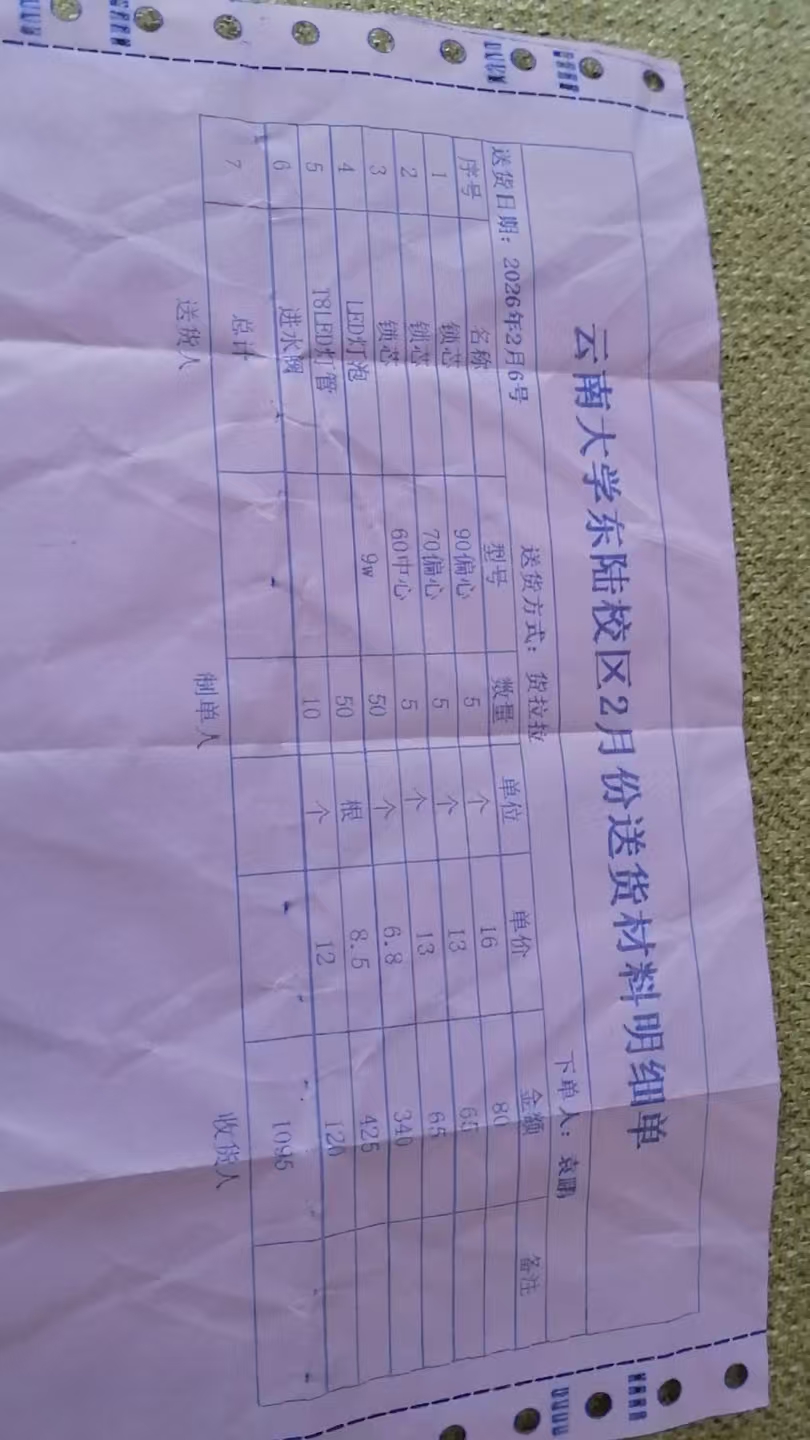 云南大学东陆校区2月份送货材料明细单
送货日期：2026年2月6号 送货方式：货拉拉 下单人：袁鹏
序号 名称 型号 数量 单位 单价 金额 备注
1 锁芯 90偏心 5 个 16 80
2 锁芯 70偏心 5 个 13 65
3 锁芯 60中心 5 个 13 65
4 LED灯泡 9w 50 个 6.8 340
5 T8LED灯管 50 根 8.5 425
6 进水阀 10 个 12 120
7 总计 1095
送货人 制单人 收货人